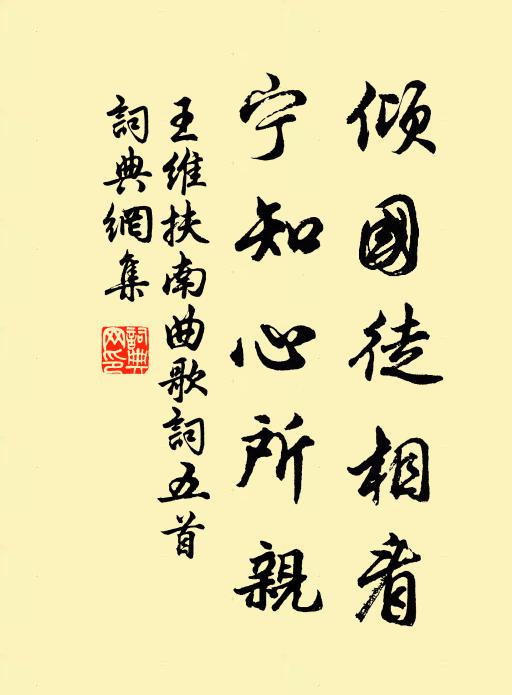 倾國徒相看
宁知心所親
王維扶南曲歌詞五首
詞典網集
詞典网印